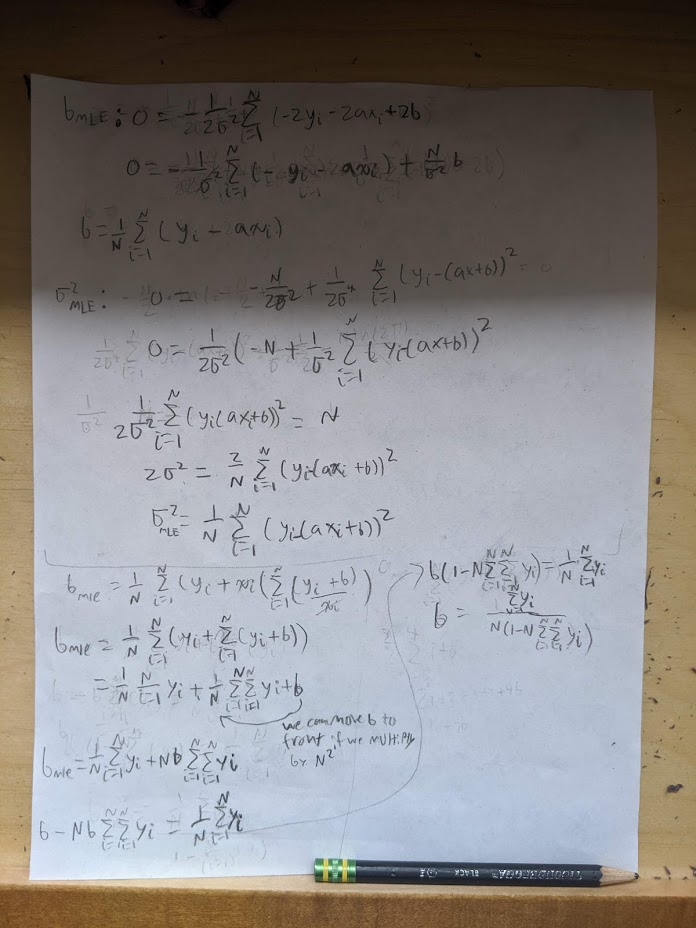 b_MLE: 0 = -1/2σ² Σ_{i=1}^{N} (-2y_i - 2ax_i + 2b)
0 = -1/σ² Σ_{i=1}^{N} (-y_i - ax_i) + N/σ² b
b = 1/N Σ_{i=1}^{N} (y_i - ax_i)
σ²_MLE: 0 = -N/2σ² + 1/2σ⁴ Σ_{i=1}^{N} (y_i-(ax+b))²
0 = 1/2σ² (-N + 1/2σ² Σ_{i=1}^{N} (y_i-(ax+b))²
1/2σ² Σ_{i=1}^{N} (y_i(ax_i+b))² = N
2σ² = 2/N Σ_{i=1}^{N} (y_i-(ax_i+b))²
σ²_MLE = 1/N Σ_{i=1}^{N} (y_i-(ax_i+b))²
b_MLE = 1/N Σ_{i=1}^{N} (y_i + x_i(Σ_{i=1}^{N} (y_i+b)/x_i)
b_MLE = 1/N Σ_{i=1}^{N} (y_i + Σ_{i=1}^{N} (y_i+b))
= 1/N Σ_{i=1}^{N} y_i + 1/N Σ_{i=1}^{N} Σ_{i=1}^{N} y_i+b
we can move b to
front if we multiply
by N²
b_MLE = 1/N Σ_{i=1}^{N} y_i + Nb Σ_{i=1}^{N} Σ_{i=1}^{N} y_i
b - Nb Σ_{i=1}^{N} Σ_{i=1}^{N} y_i = 1/N Σ_{i=1}^{N} y_i
b(1-N Σ_{i=1}^{N} Σ_{i=1}^{N} y_i) = 1/N Σ_{i=1}^{N} y_i
b = Σ_{i=1}^{N} y_i / N(1-N Σ_{i=1}^{N} Σ_{i=1}^{N} y_i)
TICONDEROGA BLACK